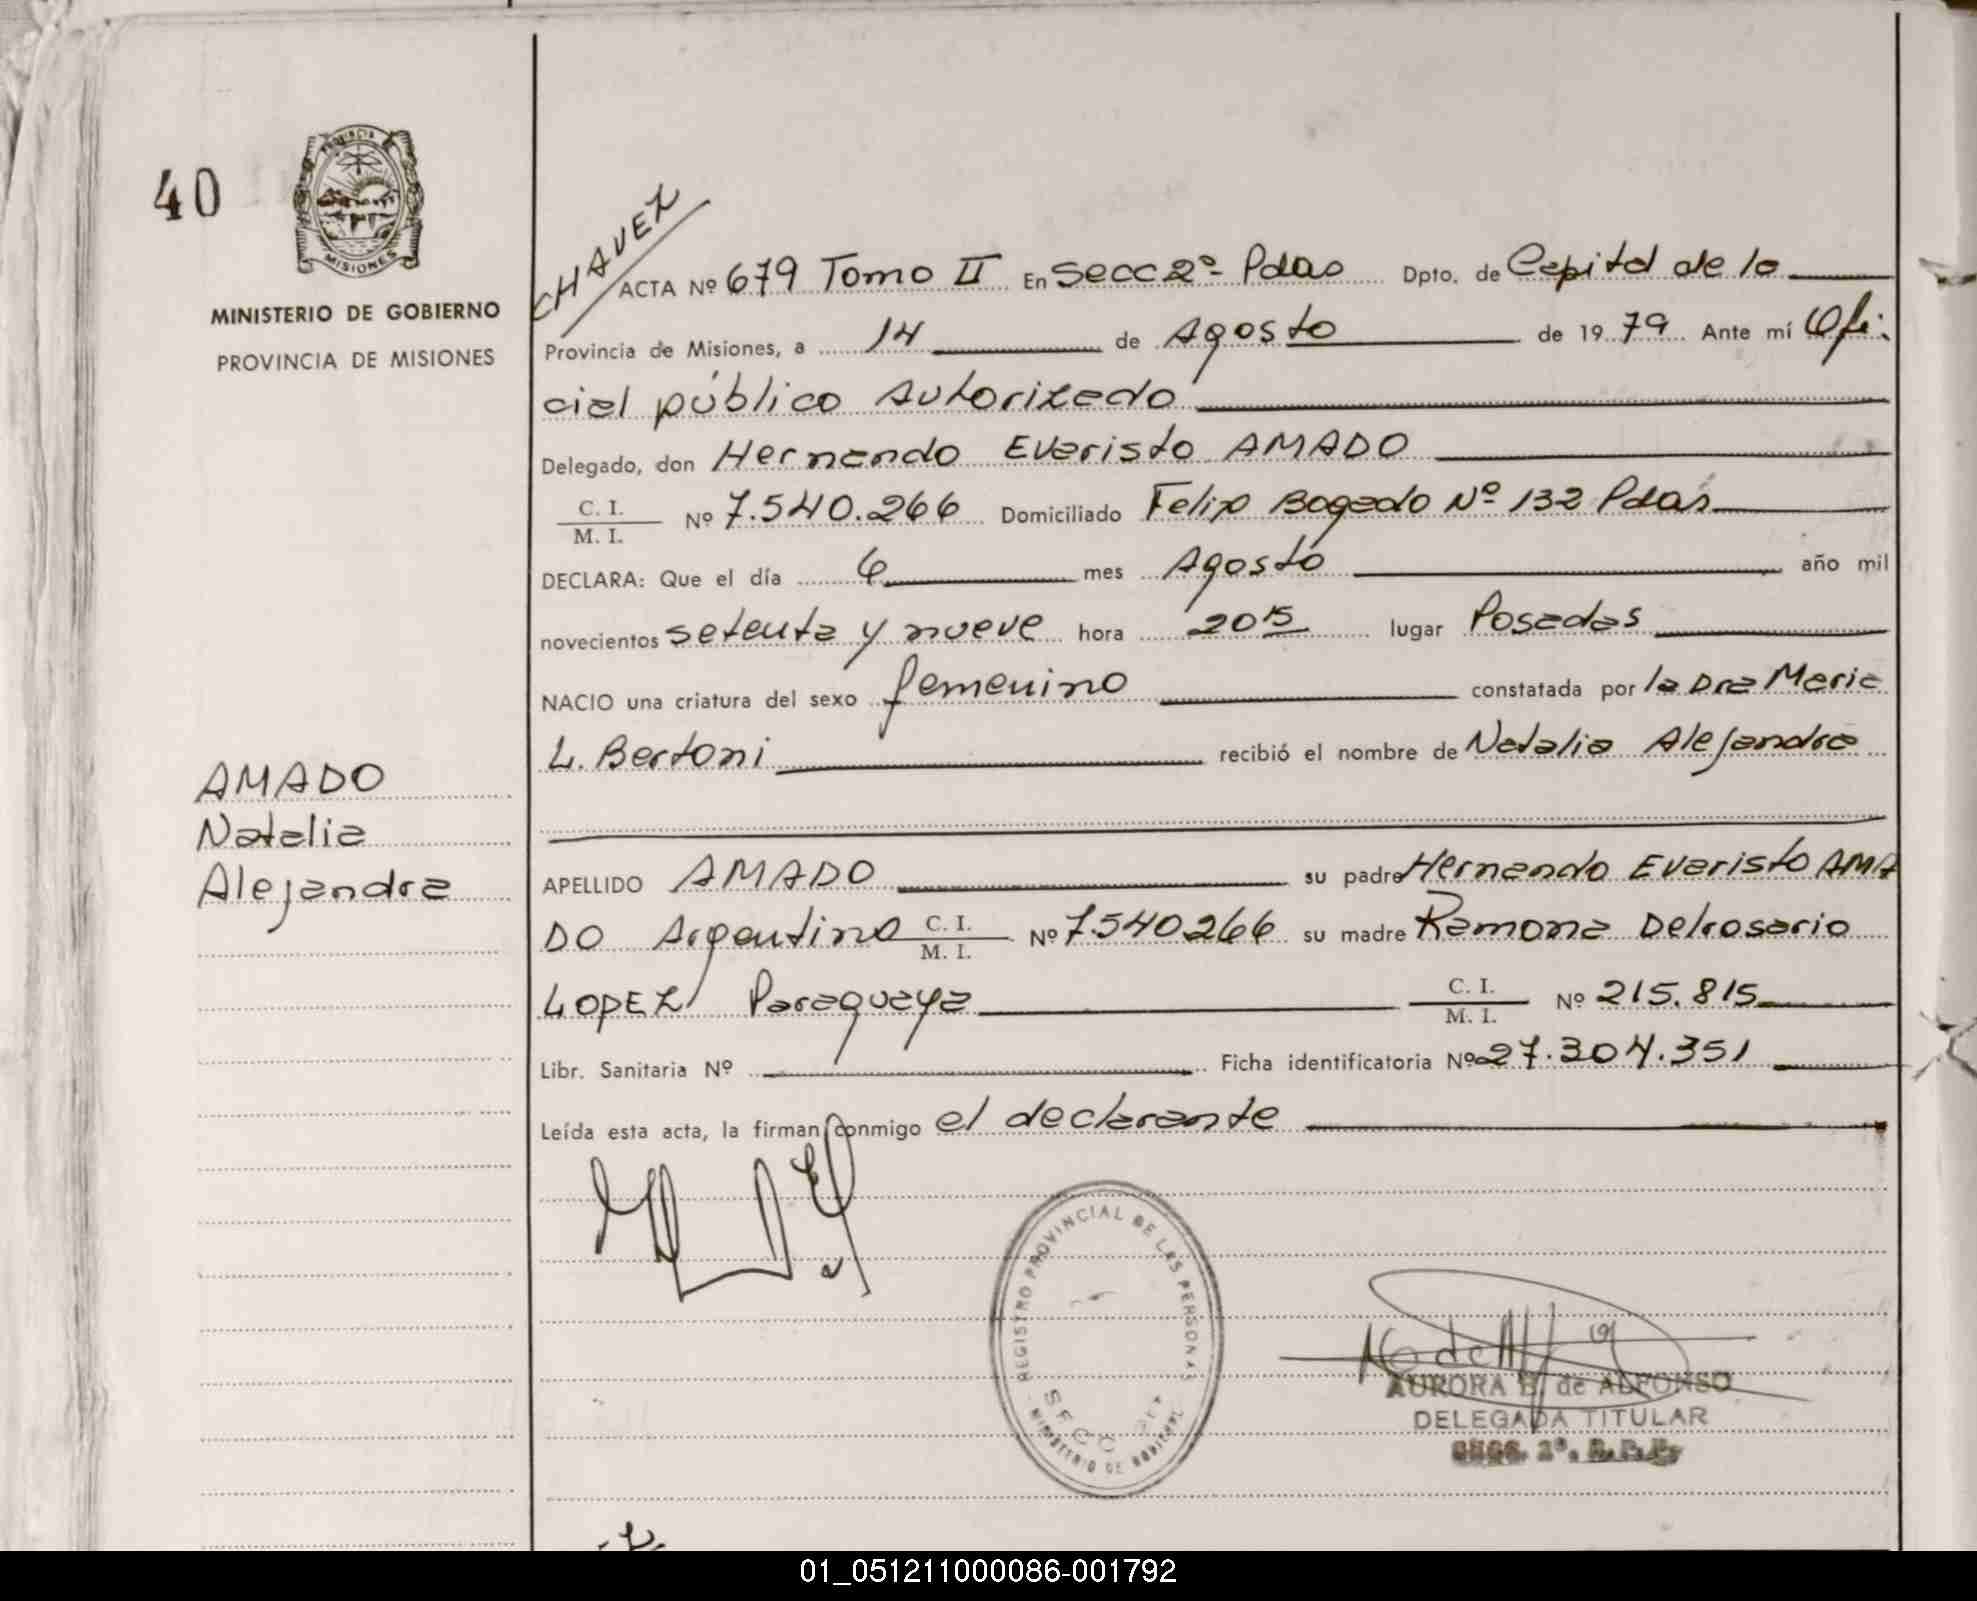 40
PROVINCIA DE
MISIONES
MINISTERIO DE GOBIERNO
PROVINCIA DE MISIONES
AMADO
Natalia
Alejandra
CHAVEZ
ACTA Nº 679 Tomo II En Secc 2º Pdas Dpto. de Capital de la
Provincia de Misiones, a 14 de Agosto de 1979 Ante mí Ofi-
cial público Autorizado
Delegado, don Hernando Evaristo AMADO
C. I.
M. I. Nº 7.540.266 Domiciliado Felip Bogado Nº 132 Pdas
DECLARA: Que el día 6 mes Agosto año mil
novecientos setenta y nueve hora 20 15 lugar Posadas
NACIO una criatura del sexo femenino constatada por la Dra Maria
L. Bertoni recibió el nombre de Natalia Alejandra
APELLIDO AMADO su padre Hernando Evaristo AMA
DO Argentino C. I. M. I. Nº 7.540.266 su madre Ramona Delrosario
LOPEZ Paraguaya C. I. M. I. Nº 215.815
Libr. Sanitaria Nº Ficha identificatoria Nº 27.304.351
Leída esta acta, la firman conmigo el declarante
REGISTRO PROVINCIAL DE LAS PERSONAS
SECC
MINISTERIO DE GOBIERNO
AURORA B. de ALFONSO
DELEGADA TITULAR
01_051211000086-001792